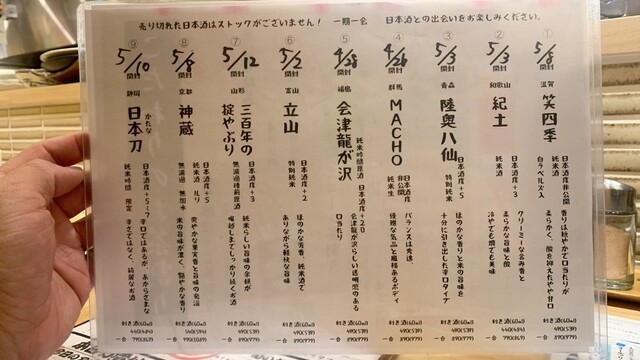 売り切れた日本酒はストックがございません！　一期一会　日本酒との出会いをお楽しみください。
①
5/8
開封
滋賀
笑四季
日本酒度非公開
純米酒
白ラベル火入
香りは穏やかで口当たりが
柔らかく、酸を抑えたやや甘口
利き酒(60ml)
一合
②
5/3
開封
和歌山
紀土
日本酒度+3
純米酒
クリーミーな含み香と
柔らかな旨味と酸
冷やでも燗でも美味
利き酒(60ml)
440(484)
一合 790(869)
③
5/3
開封
青森
陸奥八仙
日本酒度+5
特別純米
ほのかな香りと米の旨味を
十分に引き出した辛口タイプ
利き酒(60ml)
490(539)
一合 890(979)
④
4/26
開封
群馬
MACHO
日本酒度
非公開
純米生
バランスは完璧、
優雅な気品と風格あるボディ
利き酒(60ml)
490(539)
一合 890(979)
⑤
4/28
開封
福島
会津龍が沢
純米吟醸原酒
日本酒度+2.0
会津龍が沢らしい透明感のある
口当たり
利き酒(60ml)
490(539)
一合 890(979)
⑥
5/2
開封
富山
立山
日本酒度+2
特別純米
ほのかな芳香、純米酒で
ありながら軽快な旨味
利き酒(60ml)
490(539)
一合 890(979)
⑦
5/12
開封
山形
三百年の
掟やぶり
日本酒度+3
無濾過槽前原酒
純米らしい旨味の余韻が
喉越しまでしっかり続くお酒
利き酒(60ml)
490(539)
一合 890(979)
⑧
5/8
開封
京都
神蔵
日本酒度+5
純米酒 ルリ
無濾過 無加水
爽やかな果実香と旨味の発泡
米の旨味が濃く、艶やかな香り
利き酒(60ml)
540(594)
一合 990(1089)
⑨
5/10
開封
静岡
かたな
日本刀
日本酒度+5:7
純米吟醸 限定
辛口ではあるが、あからさまな
辛さではなく、綺麗なお酒
利き酒(60ml)
440(484)
一合 790(869)